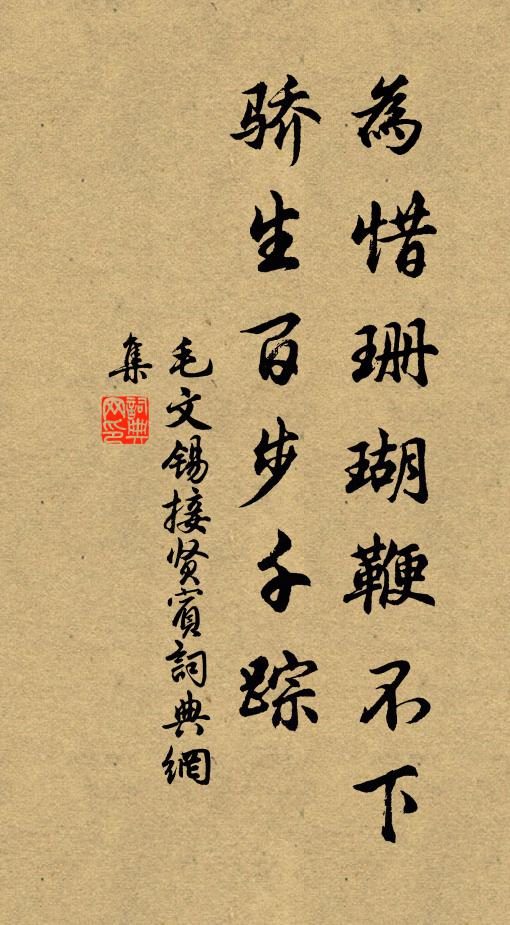 為惜珊瑚鞭不下
骄生百步千踪
毛文锡接贤賓詞典網
集
詞典
网印